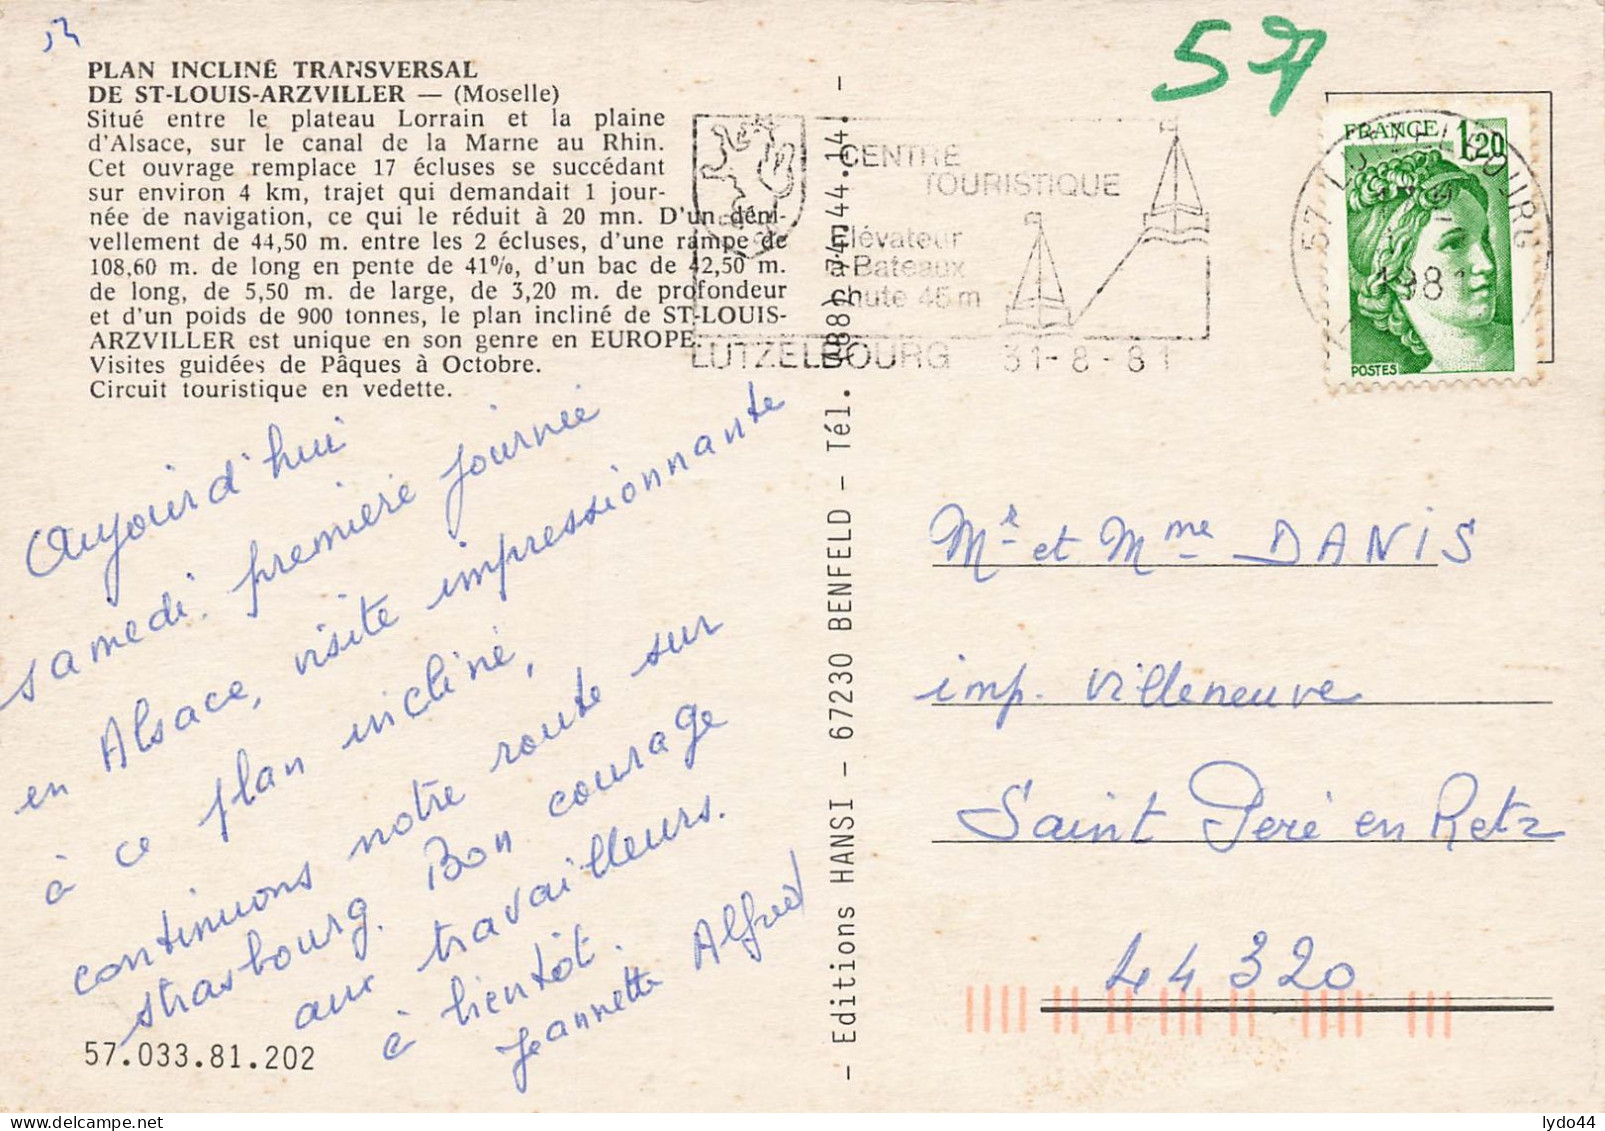 57
PLAN INCLINÉ TRANSVERSAL
DE ST-LOUIS-ARZVILLER — (Moselle)
Situé entre le plateau Lorrain et la plaine
d'Alsace, sur le canal de la Marne au Rhin.
Cet ouvrage remplace 17 écluses se succédant
sur environ 4 km, trajet qui demandait 1 jour-
née de navigation, ce qui le réduit à 20 mn. D'un déni-
vellement de 44,50 m. entre les 2 écluses, d'une rampe de
108,60 m. de long en pente de 41%, d'un bac de 42,50 m.
de long, de 5,50 m. de large, de 3,20 m. de profondeur
et d'un poids de 900 tonnes, le plan incliné de ST-LOUIS-
ARZVILLER est unique en son genre en EUROPE.
Visites guidées de Pâques à Octobre.
Circuit touristique en vedette.
Aujourd'hui
samedi. premiere journée
en Alsace, visite impressionnante
à ce plan incliné,
continuons notre route sur
strasbourg. Bon courage
aux travailleurs.
à bientôt.
Jeannette Alfred
57.033.81.202
— Editions HANSI — 67230 BENFELD — Tél. (88) 74.44.14. —
CENTRE
TOURISTIQUE
Elévateur
à Bateaux
chute 45 m
LUTZELBOURG 31-8-81
57 LUTZELBOURG
1981
FRANCE 1,20
POSTES
Mr et Mme DANIS
imp. Villeneuve
Saint Peré en Retz
44320
lydo44